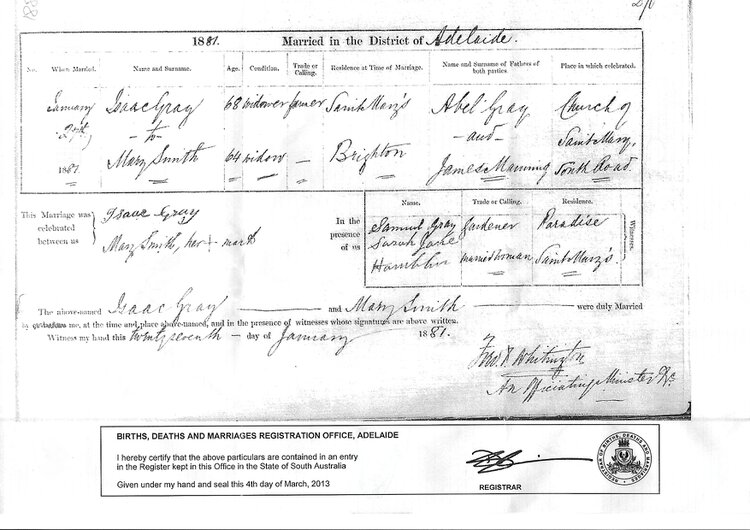 1881. Married in the District of Adelaide.
No. When Married. Name and Surname. Age. Condition. Trade or Calling. Residence at Time of Marriage. Name and Surname of Fathers of both parties Place in which celebrated.
January Isaac Gray 68 widower farmer Saint Mary's Abel Gray Church of
27th, - to - - and - Saint Mary,
1881 Mary Smith 64 widow — Brighton James Manning South Road
This Marriage was celebrated between us
Isaac Gray
Mary Smith, her + mark
In the presence of us
Name. Trade or Calling. Residence.
Samuel Gray Gardener Paradise
Sarah Jane
Hamblin married woman Saint Mary's.
Witnesses.
The above-named Isaac Gray and Mary Smith were duly Married
me, at the time and place above-named, and in the presence of witnesses whose signatures are above written.
Witness my hand this twenty seventh - day of January 1881.
Fred. Whitington
An Officiating Minister &c
BIRTHS, DEATHS AND MARRIAGES REGISTRATION OFFICE, ADELAIDE
I hereby certify that the above particulars are contained in an entry
in the Register kept in this Office in the State of South Australia
Given under my hand and seal this 4th day of March, 2013
REGISTRAR